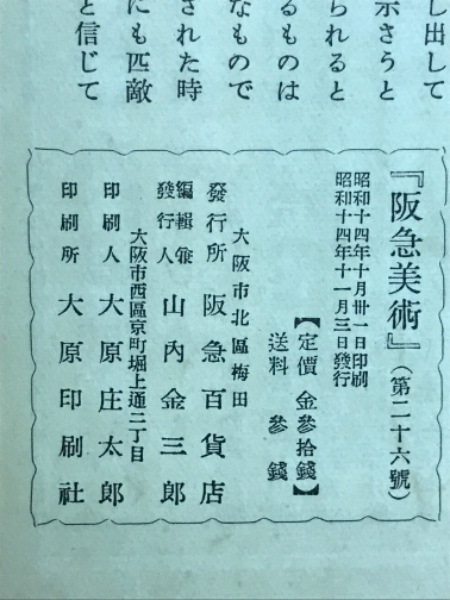 し出して
示さうと
られると
るものは
なもので
された時
にも匹敵
と信じて
『阪急美術』（第二十六號）
昭和十四年十月卅一日印刷
昭和十四年十一月三日發行
【定價 金參拾錢】
送料 參錢
大阪市北區梅田
發行所 阪急百貨店
編輯兼
發行人 山內金三郎
大阪市西區京町堀上通二丁目
印刷人 大原庄太郎
印刷所 大原印刷社